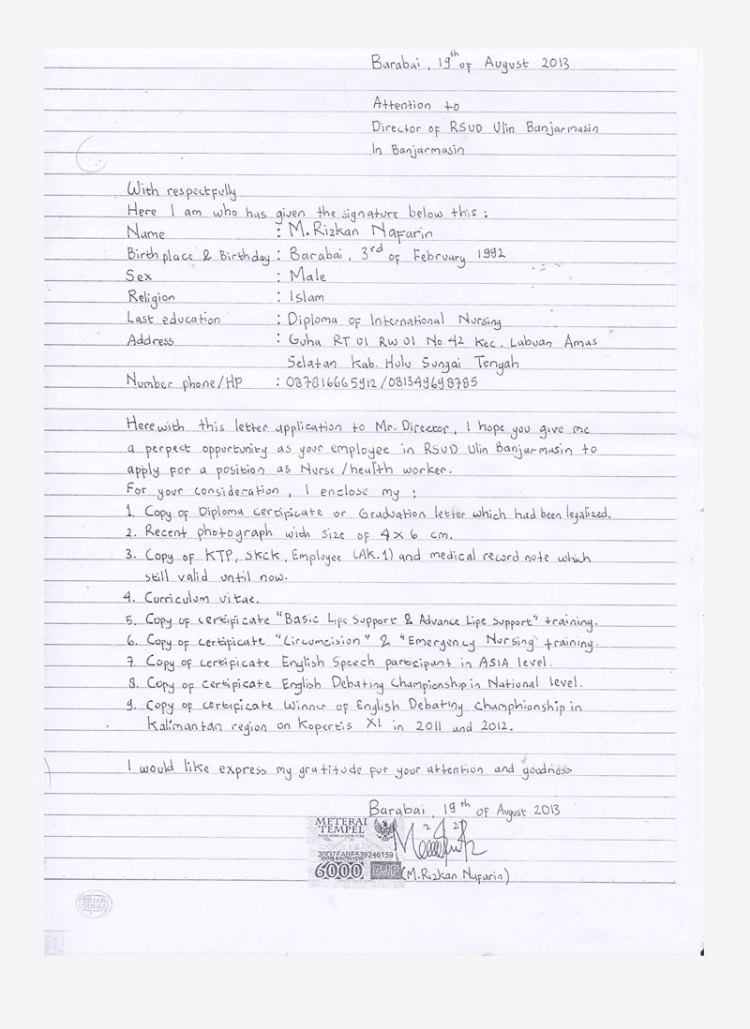 Barabai, 19th of August 2013
Attention to
Director of RSUD Ulin Banjarmasin
In Banjarmasin
With respectfully
Here I am who has given the signature below this :
Name : M. Rizkan Nafarin
Birth place & Birthday : Barabai, 3rd of February 1992
Sex : Male
Religion : Islam
Last education : Diploma of International Nursing
Address : Guha RT 01 RW 01 No 42 Kec. Labuan Amas
Selatan Kab. Hulu Sungai Tengah
Number phone/HP : 087816665912 / 081349698785
Herewith this letter application to Mr. Director, I hope you give me
a perpect oppurtunity as your employee in RSUD Ulin Banjarmasin to
apply for a position as Nurse / health worker.
For your consideration, I enclose my :
1. Copy of Diploma certificate or Graduation letter which had been legalized.
2. Recent photograph with size of 4 x 6 cm.
3. Copy of KTP, SKCK, Employee (AK.1) and medical record note which
still valid until now.
4. Curriculum vitae.
5. Copy of certificate "Basic Life Support & Advance Life Support" training.
6. Copy of certificate "Circumcision" & "Emergency Nursing" training.
7. Copy of certificate English Speech participant in ASIA level.
8. Copy of certificate English Debating Championship in National level.
9. Copy of certificate Winner of English Debating Champhionship in
Kalimantan region on Kopertis XI in 2011 and 2012.
I would like express my gratitude for your attention and goodness
Barabai, 19th of August 2013
METERAI
TEMPEL
6000 DJP
(M. Rizkan Nafarin)
SINAR
DUNIA